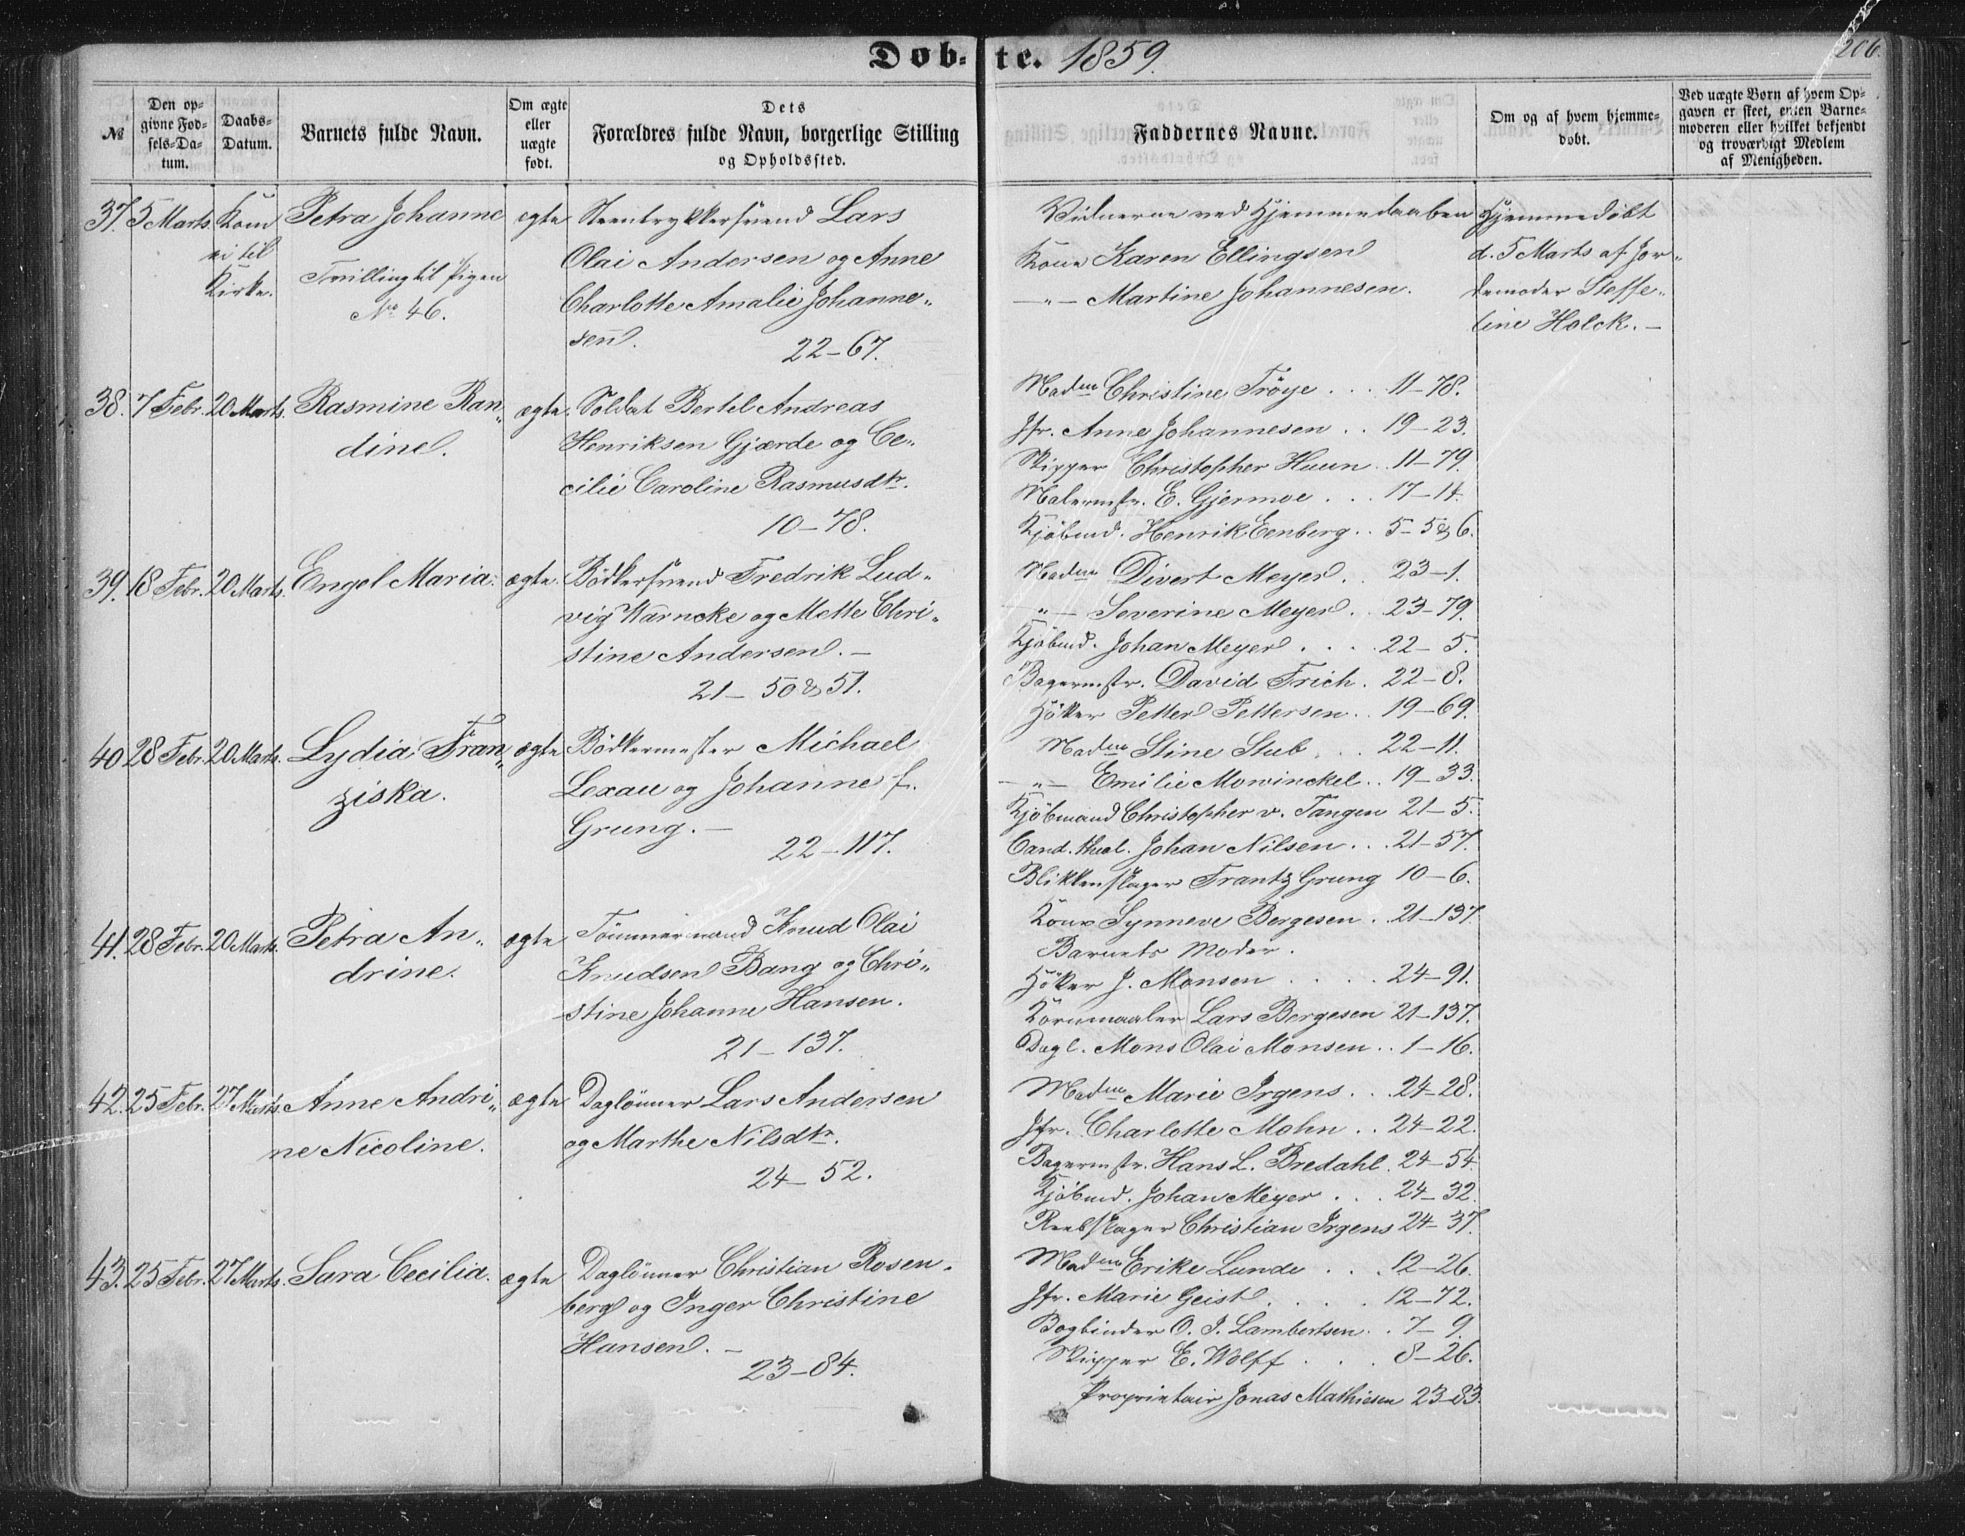 Døb-te. 1859.
206.
№
Den op-
givne Fød-
sels-Da-
tum.
Daabs-
Datum.
Barnets fulde Navn.
Om ægte
eller
uægte
født.
Dets
Forældres fulde Navn, borgerlige Stilling
og Opholdssted.
Faddernes Navne.
Om og af hvem hjemme-
døbt.
Ved uægte Børn af hvem Op-
gaven er skeet, enten Barne-
moderen eller hvilket bekjendt
og troværdigt Medlem
af Menigheden.
37. 5 Marts. Kom
ei til
Kirke.
Petra Johanne
Tvilling til Pigen
No 46.
ægte
Steentrykkersvend Lars
Olai Andersen og Anne
Charlotte Amalie Johanne-
sen.
22-67.
Vidnerne ved Hjemmedaaben
Kone Karen Ellingsen
-"- Martine Johannesen.
Hjemmedøbt
d. 5 Marts af Jor-
demoder Steffe-
line Holck. -
38. 7 Febr. 20 Marts. Rasmine Ran-
dine.
ægte.
Soldat Bertel Andreas
Henriksen Gjærde og Ce-
cilie Caroline Rasmusdtr.
10-78.
Madm Christine Trøye . . . 11-78.
Jfr. Anne Johannesen . . 19-23.
Skipper Christopher Huun . 11-79.
Malermstr. E. Gjermoe . . . 17-14.
Kjøbmd. Henrik Eenberg . . 5-5 & 6.
39. 18 Febr. 20 Marts. Engel Maria.
ægte.
Bødkersvend Fredrik Lud-
vig Warncke og Mette Chri-
stine Andersen. -
21-50 & 51.
Madm Divert Meyer . . 23-1.
-"- Severine Meyer . . 23-79.
Kjøbmd. Johan Meyer . . . . 22-5.
Bagermstr. David Frich . 22-8.
Høker Petter Pettersen . . 19-69.
40. 28 Febr. 20 Marts. Lydia Fran-
ziska.
ægte
Bødkermester Michael
Lexau og Johanne f.
Grung. -
22-117.
Madm Stine Stub . . . 22-11.
-"- Emilie Mowinckel . . 19-33.
Kjøbmand Christopher v. Tangen 21-5.
Cand. theol. Johan Nilsen . . . 21-57.
Blikkenslager Frantz Grung 10-6.
41. 28 Febr. 20 Marts. Petra An-
drine.
ægte
Tømmermand Knud Olai
Knudsen Bang og Chri-
stine Johanne Hansen.
21-137.
Kone Synneve Børgesen . . 21-137.
Barnets Moder.
Høker J. Monsen . . . . 24-91.
Kornmaaler Lars Børgesen 21-137.
Dagl. Mons Olai Monsen . . 1-16.
42. 25 Febr. 27 Marts. Anne Andri-
ne Nicoline.
ægte
Daglønner Lars Andersen
og Marthe Nilsdtr.
24-52.
Madm Marie Irgens . . . 24-28.
Jfr. Charlotte Mohn . . 24-22.
Bagermstr. Hans L. Bredahl. 24-54
Kjøbmd. Johan Meyer . . . 24-32.
Reebslager Christian Irgens 24-37.
43. 25 Febr. 27 Marts. Sara Cecilia.
ægte
Daglønner Christian Rosen-
berg og Inger Christine
Hansen. -
23-84.
Madm Erike Lunde . . . 12-26.
Jfr. Marie Geist . . . . 12-72.
Bogbinder O. J. Lambertsen . . 7-9.
Skipper E. Wolff . . . 8-26.
Proprietair Jonas Mathiesen 23-83.